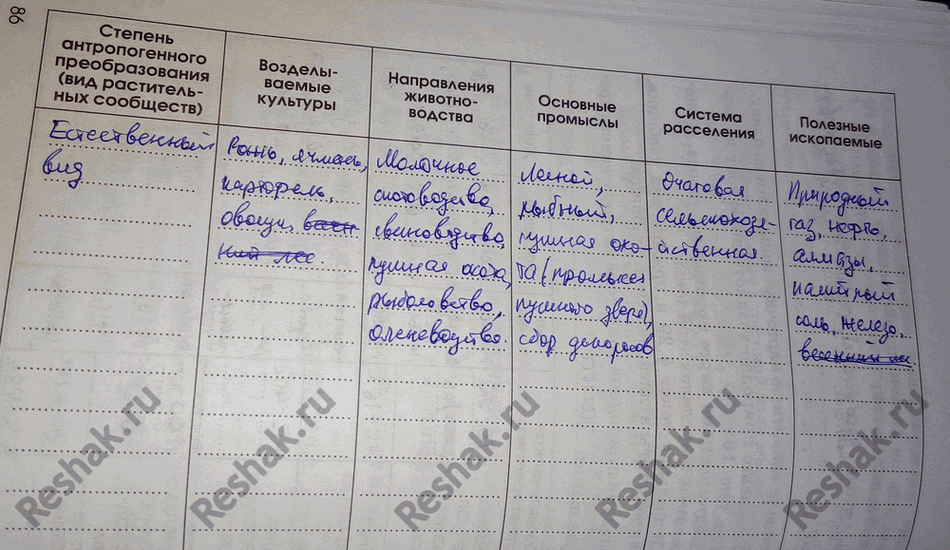 98
Степень
антропогенного
преобразования
(вид раститель-
ных сообществ)
Возделы-
ваемые
культуры
Направления
животно-
водства
Основные
промыслы
Система
расселения
Полезные
ископаемые
Естественный
вид
Рожь, ячмень,
картофель,
овощи, весен
ний лес
Молочное
скотоводство,
свиноводство,
пушная охота,
рыболовство,
оленеводство.
Лесной,
рыбный,
пушная охо-
та (промысел
пушного зверя),
сбор дикоросов
Очаговая
сельскохозя-
йственная.
Природный
газ, нефть,
алмазы,
калийный
соль, железо,
весенний лес
Reshak.ru
Reshak.ru
Reshak.ru
Reshak.ru
Reshak.ru